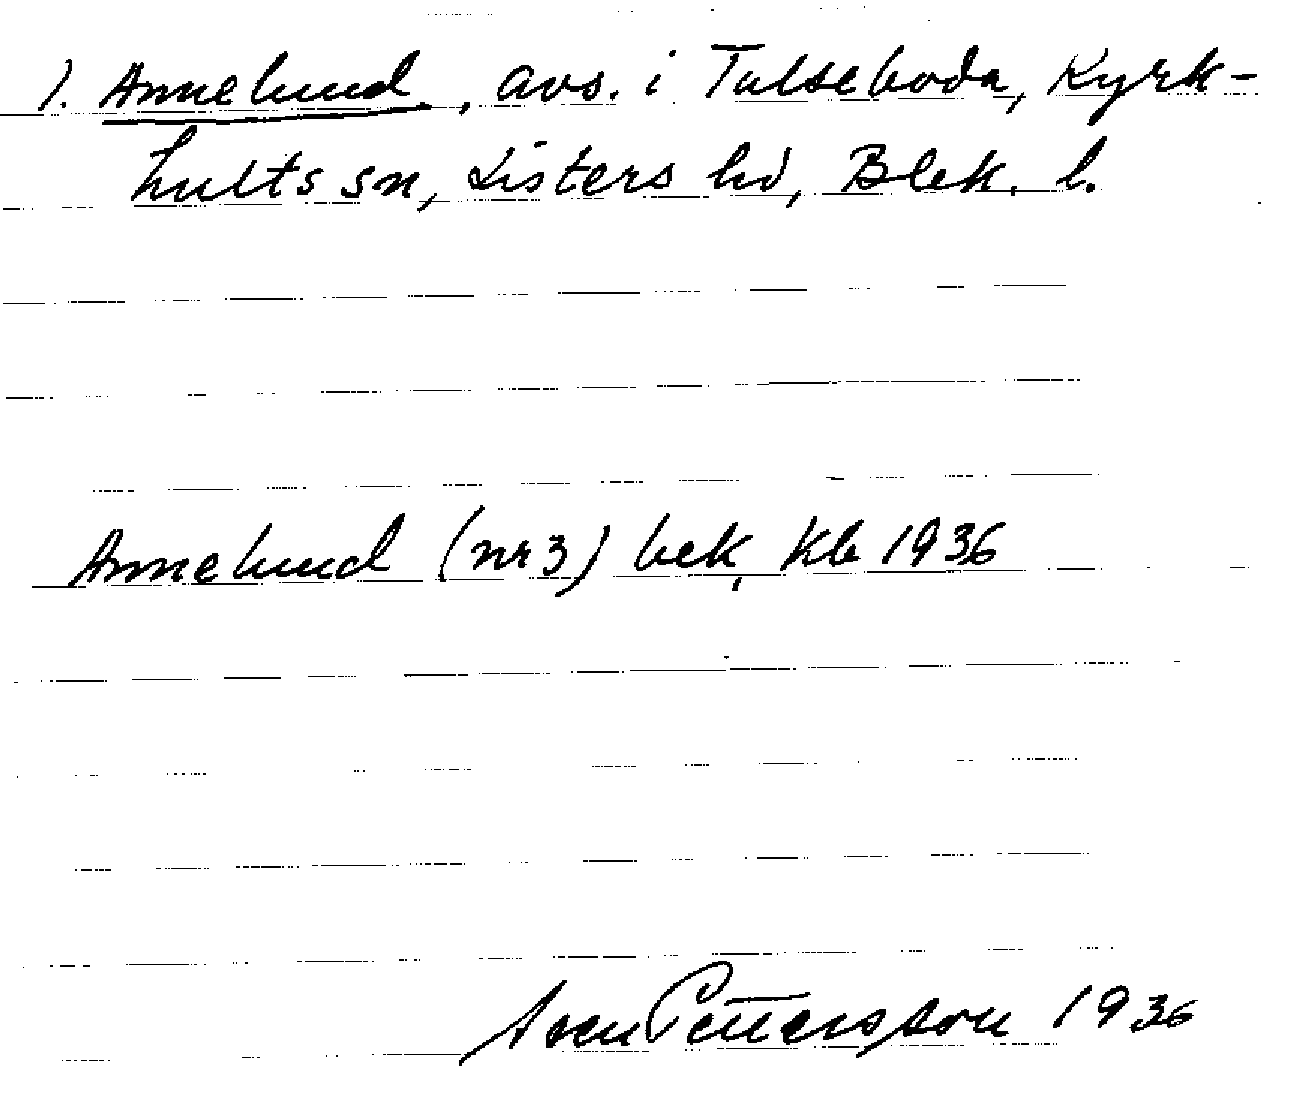 1. Annelund, avs. i Tulseboda, Kyrk-
hults sn, Listers hd, Blek. l.
Annelund (nr 3) bek, Kb 1936
Sven Pettersson 1936